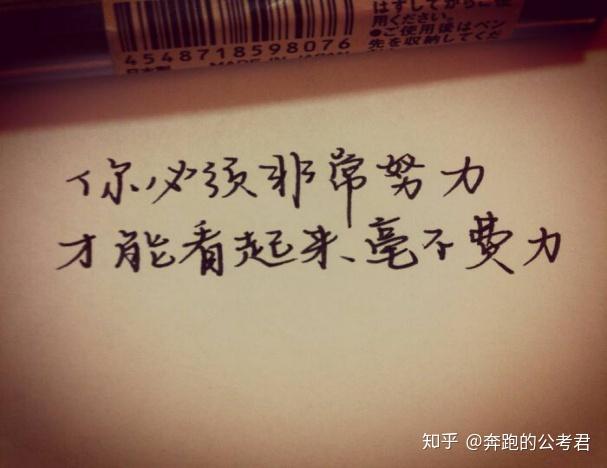 はずしてからご使
用ください。
●ご使用後はペン
先を収納してくだ
4548718598076
日本製 MADE IN JAPAN
你必须非常努力
才能看起来、毫不费力
知乎 @奔跑的公考君